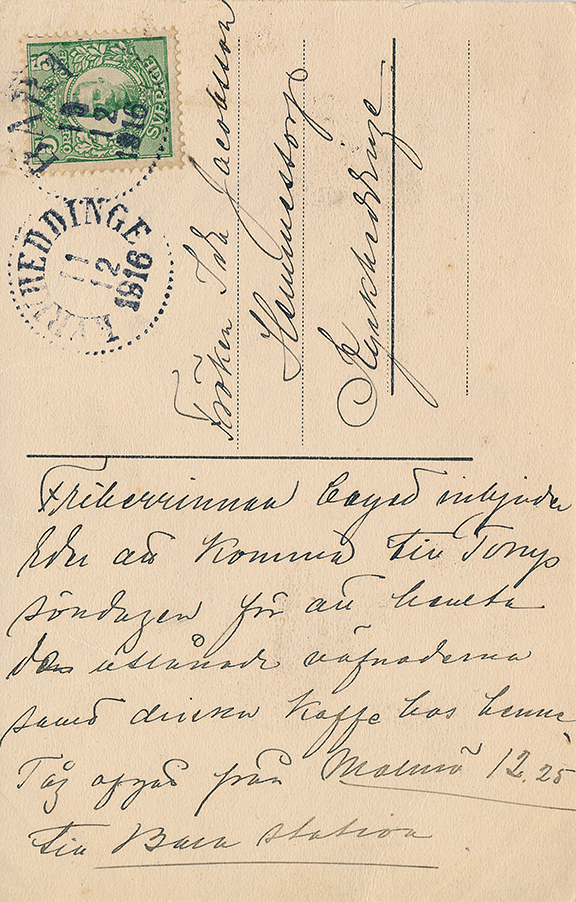 BARA
11
12
1916
SVERIGE
ÖRE
KYRKHEDDINGE
11
12
1916
Fröken Ida Jacobsson
Hemmestorp
Kyrkheddinge
Friherrinnan inbjuder
Eder att komma till Torup
söndagen för att hemta
de utlånade väfnaderna
samt dricka kaffe hos henne,
Tåg afgår från Malmö 12.25
till Bara station